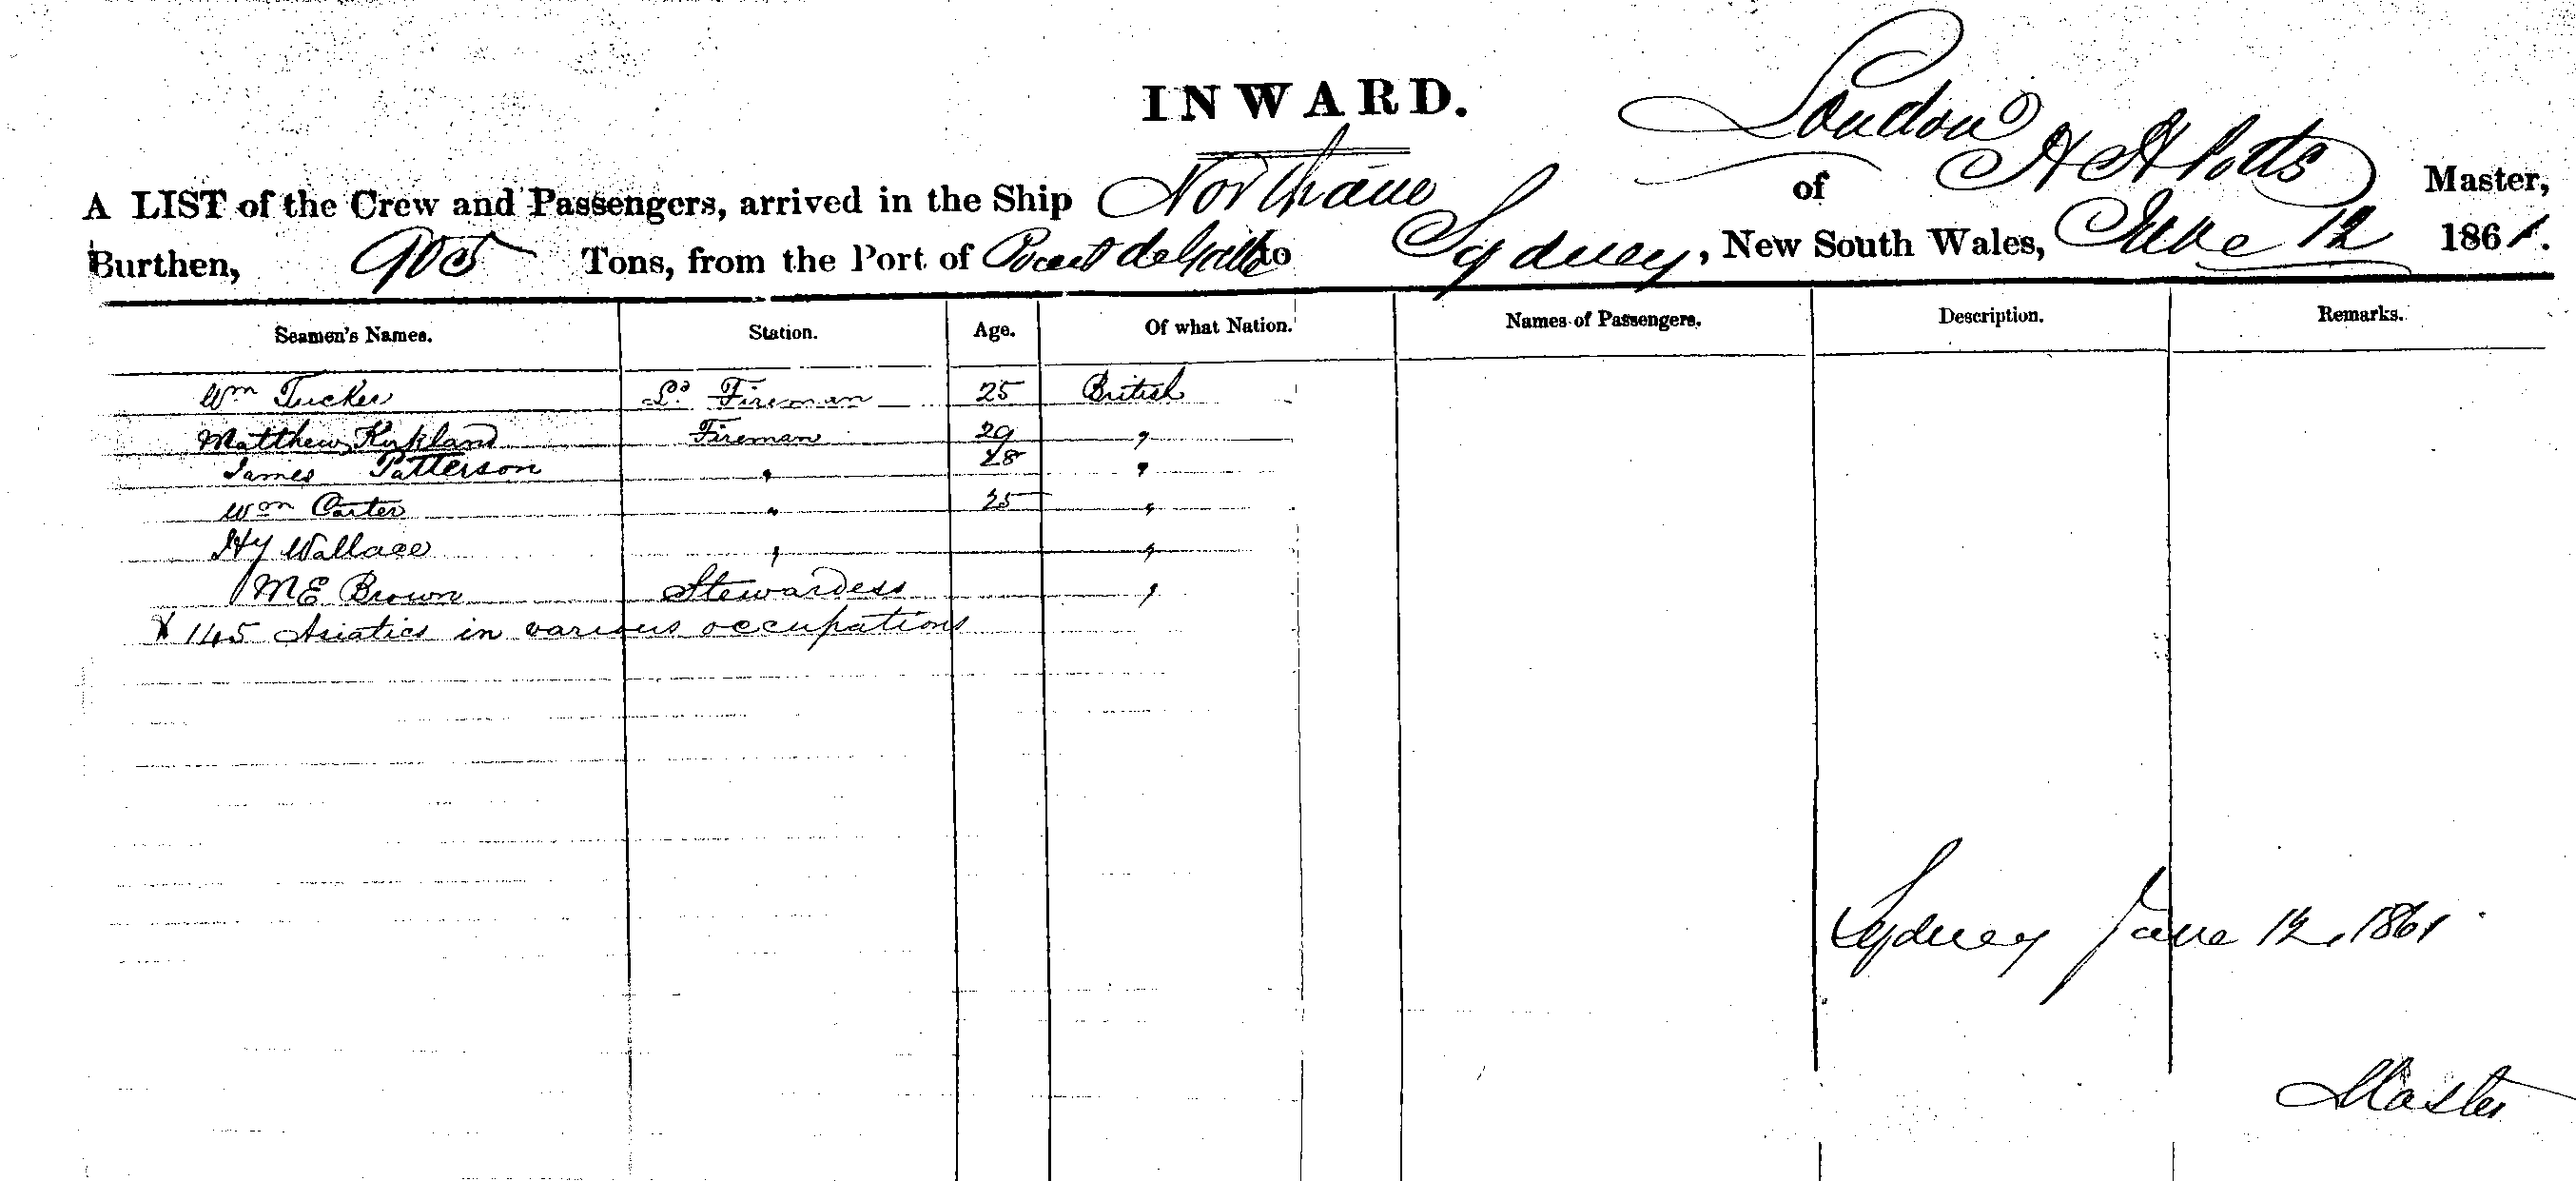 INWARD.
London
A LIST of the Crew and Passengers, arrived in the Ship Northam of H H Potts Master,
Burthen, 905 Tons, from the Port of Point de Galle to Sydney, New South Wales, June 12 1861.
Seamen's Names. Station. Age. Of what Nation. Names of Passengers. Description. Remarks.
Wm Tucker Fireman 25 British
Matthew Kirkland Fireman 29 "
James Patterson " 28 "
Wm Carter " 25 "
Hy Wallace " "
M E Brown Stewardess "
X 145 Asiatics in various occupations
Sydney June 12, 1861
Master